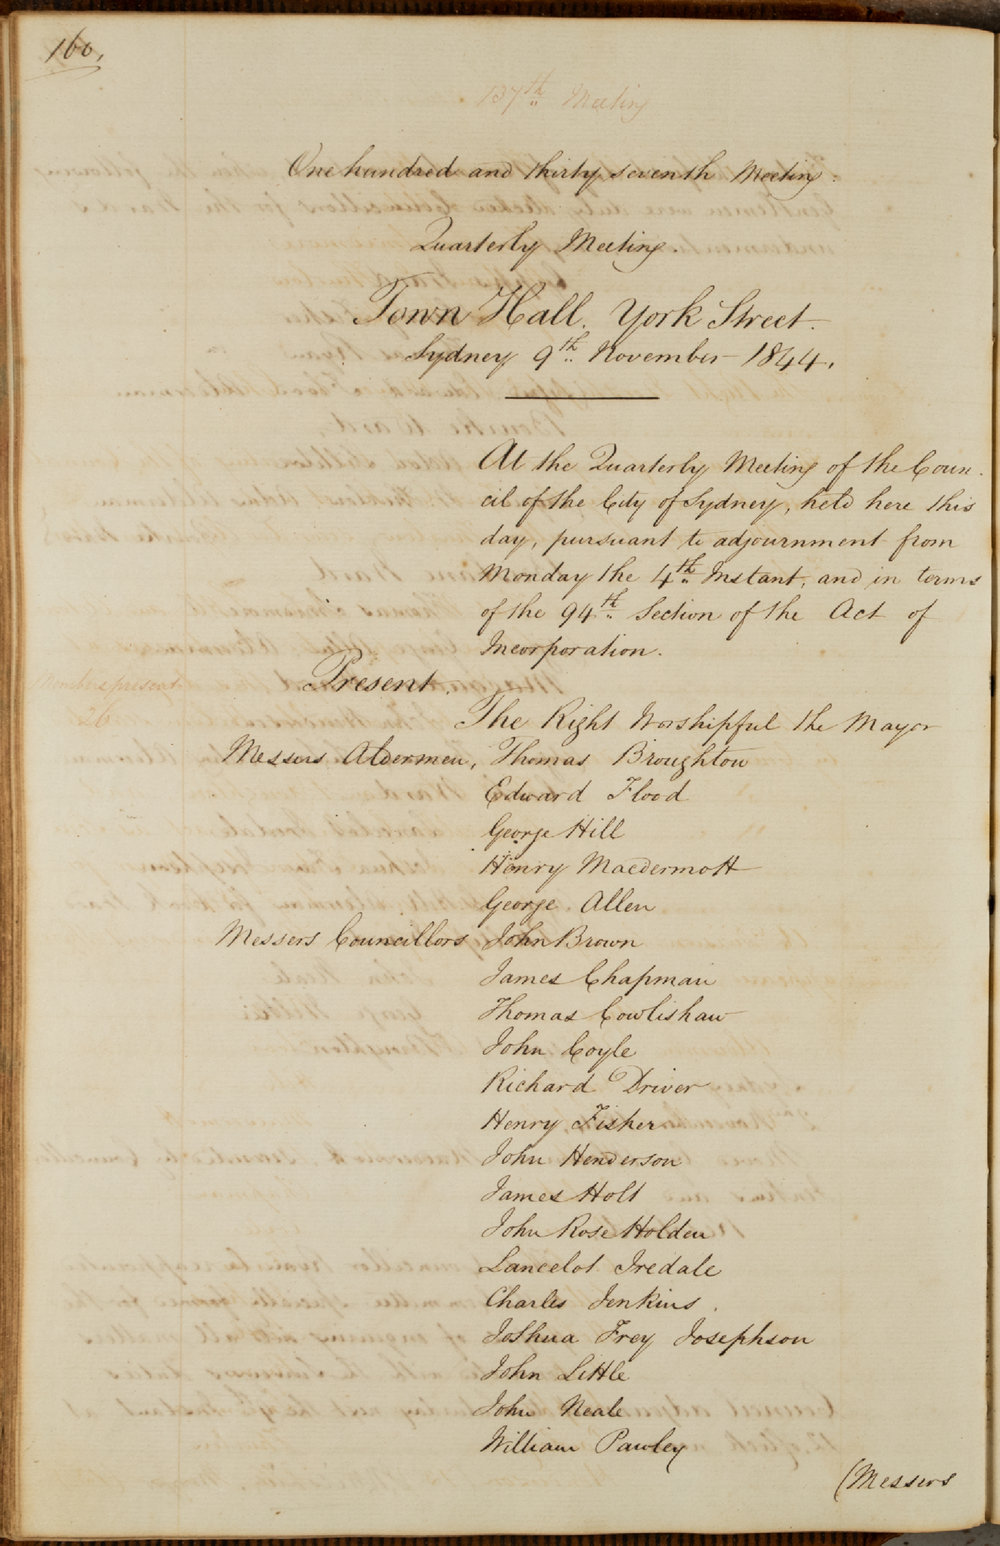 160.
137th Meeting
One hundred and thirty seventh Meeting.
Quarterly Meeting.
Town Hall. York Street.
Sydney 9th November 1844.
At the Quarterly Meeting of the Coun-
cil of the City of Sydney, held here this
day, pursuant to adjournment from
Monday the 4th Instant, and in terms
of the 94th Section of the Act of
Incorporation.
Present.
Members present
26
The Right Worshipful the Mayor
Messers Aldermen, Thomas Broughton
Edward Flood
George Hill
Henry Macdermott
George Allen
Messers Councillors John Brown
James Chapman
Thomas Cowlishaw
John Coyle
Richard Driver
Henry Fisher
John Henderson
James Holt
John Rose Holden
Lancelot Iredale
Charles Jenkins.
Joshua Frey Josephson
John Little
John Neale
William Pawley
(Messers